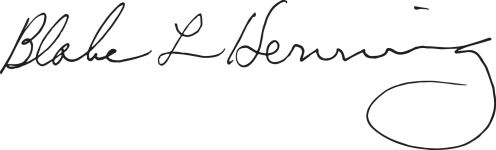 Blake L Henning